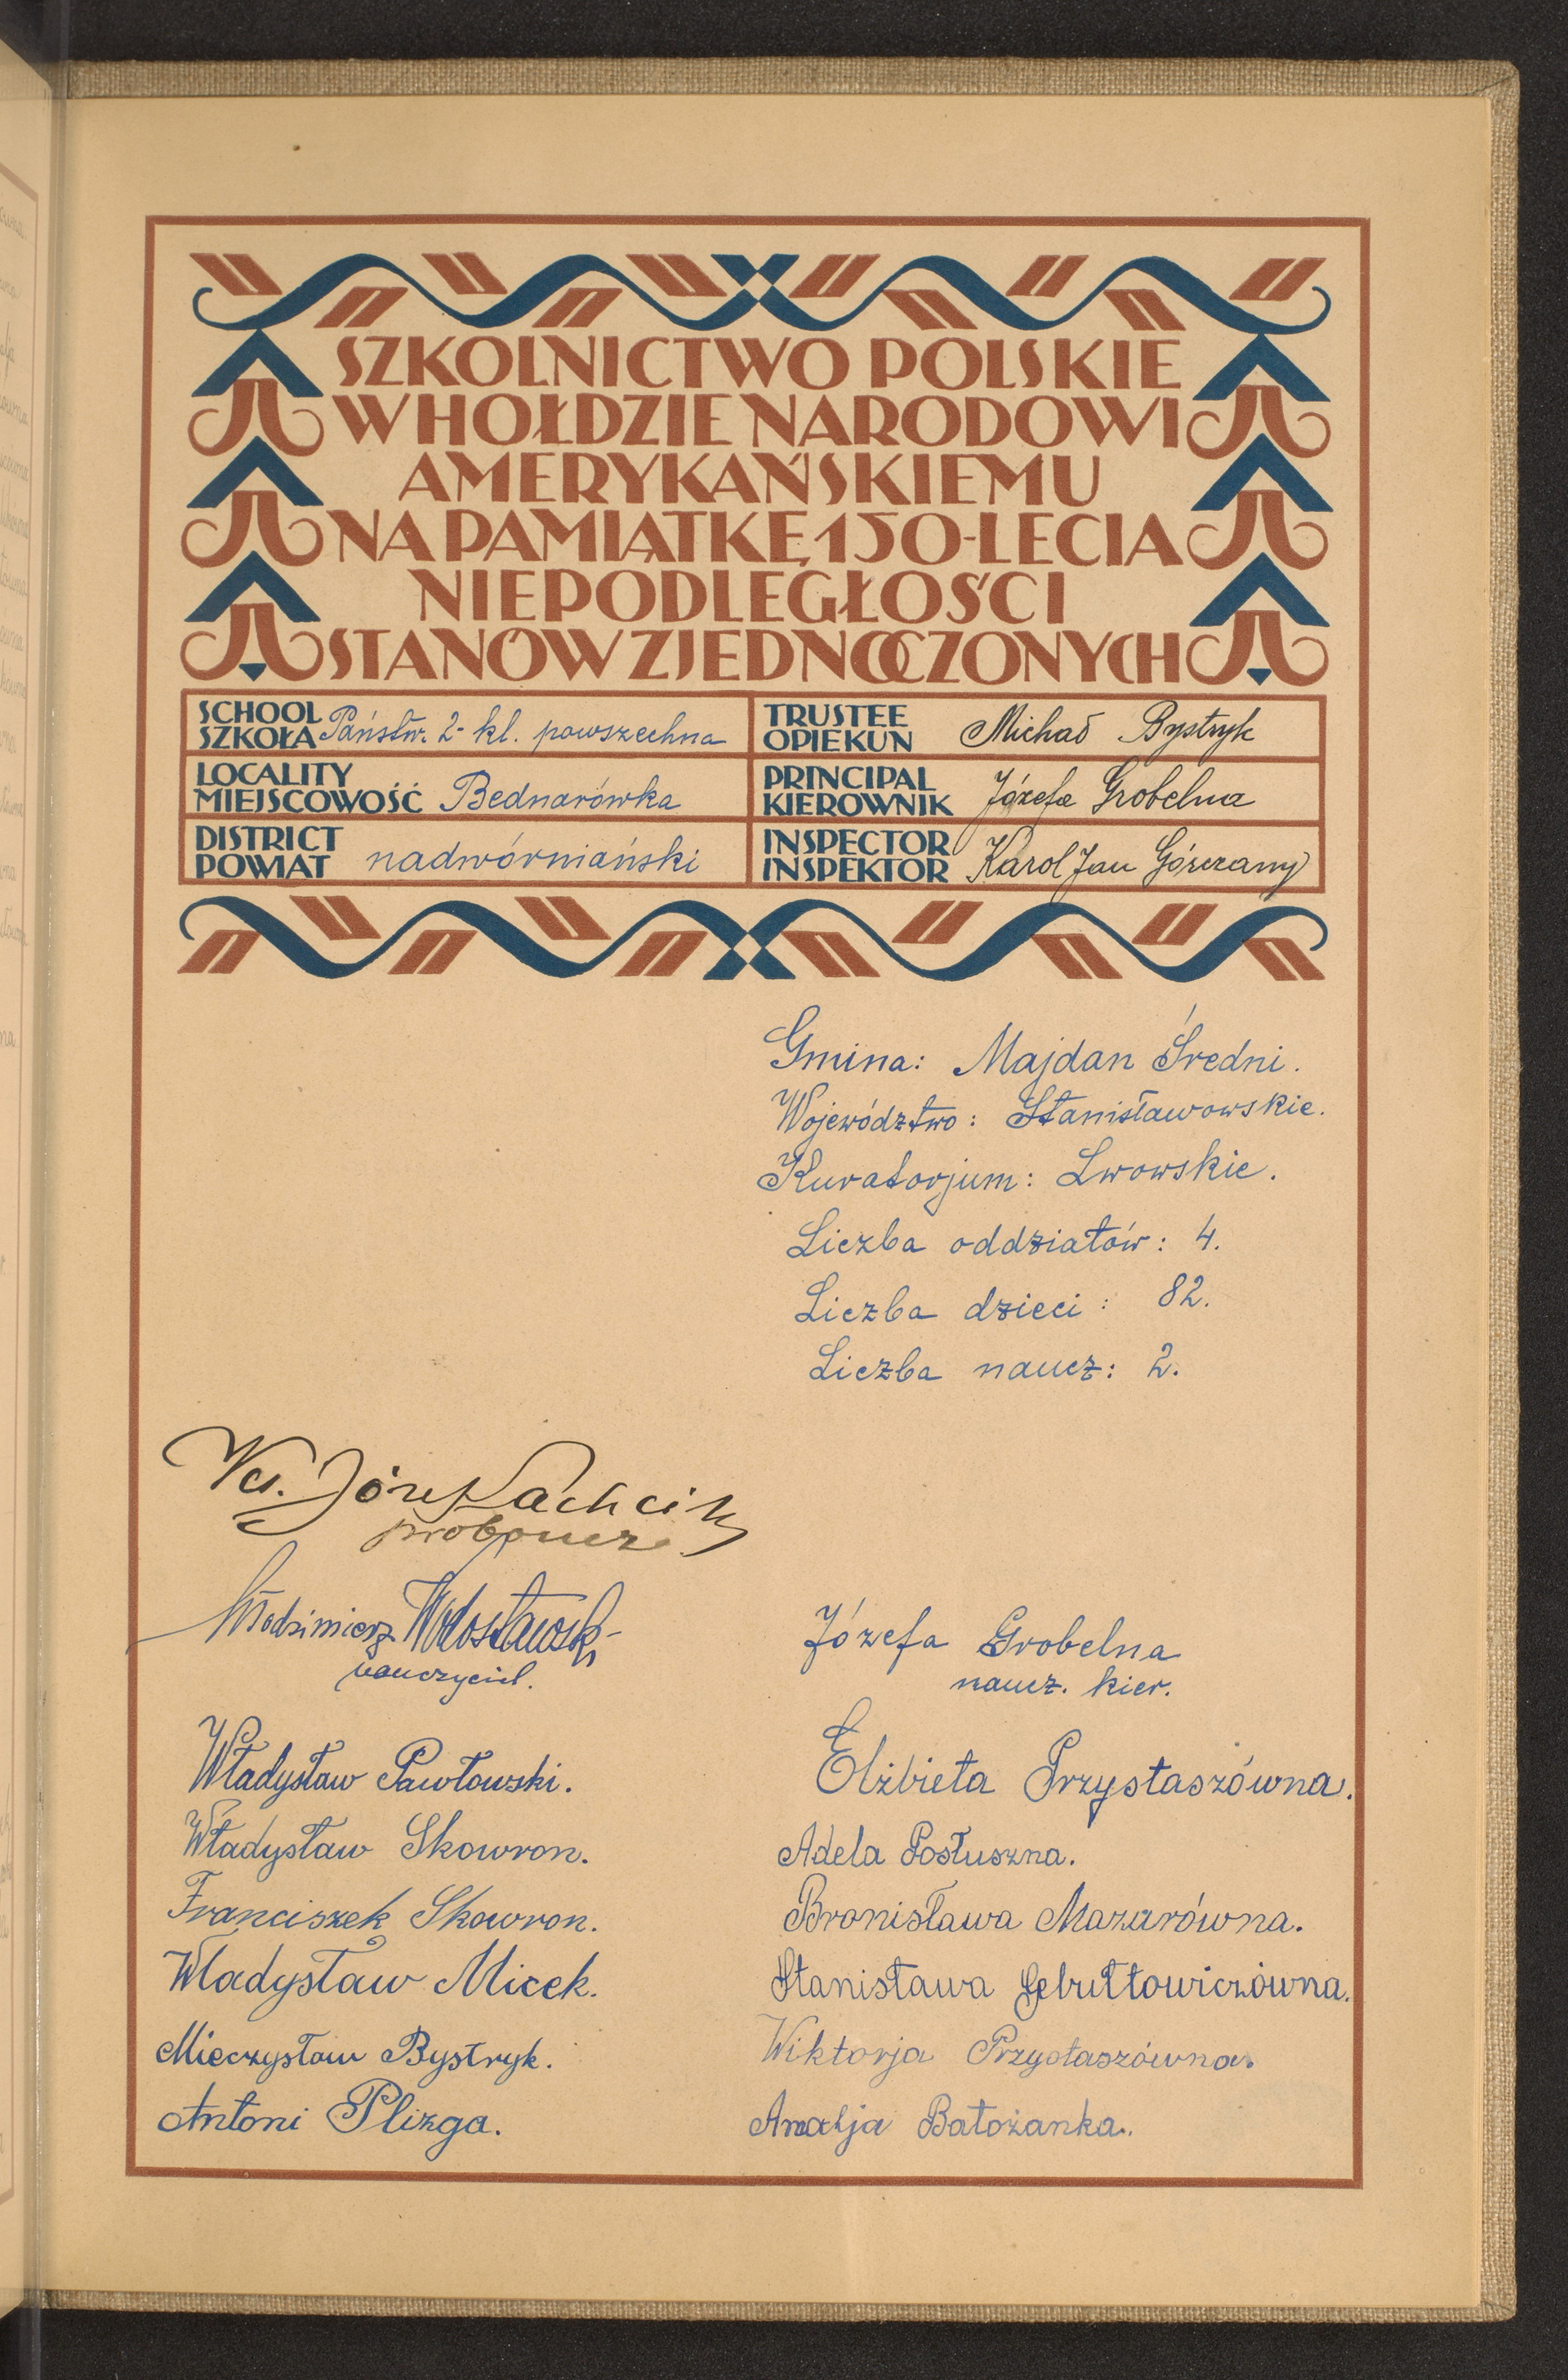 SZKOLNICTWO POLSKIE
W HOŁDZIE NARODOWI
AMERYKAŃSKIEMU
NA PAMIĄTKĘ 150-LECIA
NIEPODLEGŁOŚCI
STANÓW ZJEDNOCZONYCH
SCHOOL
SZKOŁA Państw. 2-kl. powszechna
LOCALITY
MIEJSCOWOŚĆ Bednarówka
DISTRICT
POWIAT nadwórniański
TRUSTEE
OPIEKUN Michał Bystryk
PRINCIPAL
KIEROWNIK Józefa Grobelna
INSPECTOR
INSPEKTOR Karol Jan Górczany
Gmina: Majdan Średni.
Województwo: Stanisławowskie.
Kuratorjum: Lwowskie.
Liczba oddziałów: 4.
Liczba dzieci: 82.
Liczba naucz: 2.
Józef
proboszcz
Włodzimierz
nauczyciel.
Władysław Pawłowski.
Władysław Skowron.
Franciszek Skowron.
Władysław Micek.
Mieczysław Bystryk.
Antoni Plizga.
Józefa Grobelna
naucz. kier.
Elżbieta Przystaszówna.
Adela Posłuszna.
Bronisława Mazurówna.
Stanisława Gebułtowiczówna.
Wiktorja Przystaszówna.
Amalja Batożanka.